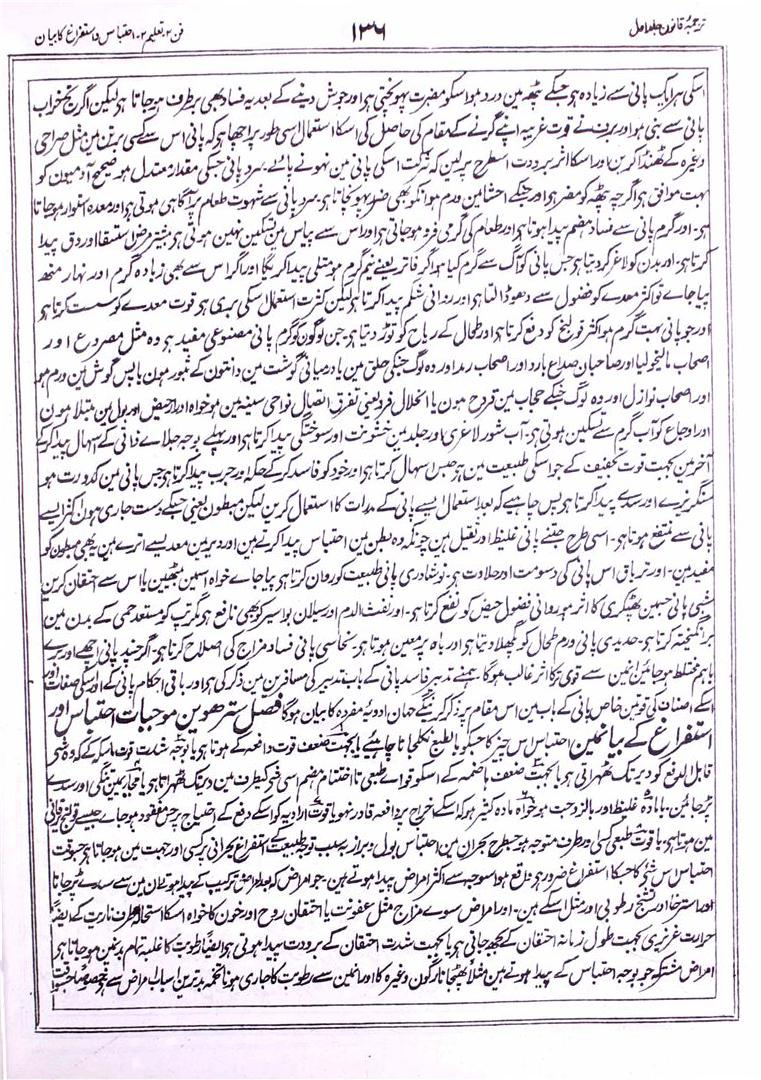 ترجمۂ قانون جلد اول ۱۳۶ فن ۲۔ تعلیم ۲۔ احتباس و استفراغ کا بیان
اسکی ہر ایک پانی سے زیادہ ہو جسکے پٹھہ مین درد ہو اسکو مضرت پہونچتی ہو اور جوش دینے کے بعد یہ فساد بھی برطرف ہو جاتا ہو لیکن اگر یخ خراب
پانی سے بنی ہو اور برف نے قوت غریبہ اپنے گرنے کے مقام کی حاصل کی اسکا استعمال اسی طور پر اچھا ہو کہ پانی اس سے کسی برتن مین مثل صراحی
وغیرہ کے ٹھنڈا کرین اور اسکا اثر برودت اسطرح پر لین کہ شرکت اسکی پانی مین نہونے پائے۔ سرد پانی جسکی مقدار معتدل ہو صحیح آدمیون کو
بہت موافق ہو اگرچہ پٹھہ کو مضر ہو اور جنکے احشا مین ورم ہو انکو بھی ضرر پہونچاتا ہو۔ سرد پانی سے شہوت طعام پر آگاہی ہوتی ہو اور معدہ استوار ہو جاتا
ہو۔ اور گرم پانی سے فساد ہضم پیدا ہوتا ہو اور طعام کی گرمی فرو ہو جاتی ہو اور اس سے پیاس مین تسکین نہین ہوتی ہو بیشتر مرض استسقا اور دق پیدا
کرتا ہو۔ اور بدن کو لاغر کر دیتا ہو جس پانی کو آگ سے گرم کیا ہو اگر فاتر یعنے نیم گرم ہو متلی پیدا کریگا اور اگر اس سے بھی زیادہ گرم اور نہار منھ
پیا جاے تو اکثر معدے کو فضول سے دھو ڈالتا ہو اور روانی شکم پیدا کرتا ہو لیکن کثرت استعمال اسکی بری ہو قوت معدے کو سست کرتا ہو
اور جو پانی بہت گرم ہو اکثر قولنج کو دفع کرتا ہو اور طحال کے ریاح کو توڑ دیتا ہو۔ جن لوگون کو گرم پانی مصنوعی مفید ہو وہ مثل مصروع اور
اصحاب مالیخولیا اور صاحبان صداع بارد اور اصحاب رمد اور وہ لوگ جنکی حلق مین یا درمیانی گوشت مین دانتون کے بثور ہون یا پس گوش مین ورم ہو
اور اصحاب نوازل اور وہ لوگ جنکے حجاب مین قروح ہون یا انحلال فرد یعنی تفرق اتصال نواحی سینہ مین ہو خواہ ادرار حیض اور بول مین مبتلا ہون
اور اوجاع کو آب گرم سے تسکین ہوتی ہو۔ آب شور لاغری اور جلد مین خشونت اور سوختگی پیدا کرتا ہو اور پہلے بوجہ جلاے ذاتی کے اسہال پیدا کرکے
آخر مین بجہت قوت تجفیف کے جو اسکی طبیعت مین ہو حبس اسہال کرتا ہو اور خود کو فاسد کرکے حکہ اور جرب پیدا کرتا ہو جس پانی مین کدورت ہو
سنگریزے اور سدے پیدا کرتا ہو پس چاہیے کہ بعد استعمال ایسے پانی کے مدرات کا استعمال کرین لیکن مبطون یعنی جسکے دست جاری ہون اکثر ایسے
پانی سے منتفع ہوتا ہو۔ اسی طرح جتنے پانی غلیظ اور ثقیل ہین چونکہ وہ بطن مین احتباس پیدا کرتے ہین اور دیر مین معدے سے اترے ہین یہ بھی مبطون کو
مفید ہین۔ اور تریاق اس پانی کی دسومت اور حلاوت ہو۔ نوشادری پانی طبیعت کو روان کرتا ہو پیا جاے خواہ اسمین بیٹھین یا اس سے احتقان کرین
شبی پانی جسمین پھٹکری کا اثر ہو روانی فضول حیض کو نفع کرتا ہو۔ اور نفث الدم اور سیلان بواسیر کو بھی نافع ہو مگر تپ کو مستعد حمی کے بدن مین
برانگیختہ کرتا ہو۔ حدیدی پانی ورم طحال کو گھلا دیتا ہو اور باہ پر معین ہوتا ہو۔ نحاسی پانی فساد مزاج کی اصلاح کرتا ہو۔ اگر چند پانی اچھے اور برے
باہم مختلط ہو جائین انمین سے قوی تر کا اثر غالب ہوگا ہمنے تدبیر فاسد پانی کے باب تدبیر کی مسافرین مین ذکر کی ہو اور باقی احکام پانی کے اور اسکی صفات اور
اسکے اصناف کی قوتین خاص پانی کے باب مین اس مقام پر ذکر کرینگے جہان ادویۂ مفردہ کا بیان ہوگا فصل سترھوین موجبات احتباس اور
استفراغ کے بیانمین احتباس اس چیز کا جسکو بالطبع نکلجانا چاہیے یا بجہت ضعف قوت دافعہ کے ہوتا ہو یا بوجہ شدت قوت ماسکہ کے کہ وہ شی
قابل الدفع کو دیر تک ٹھہراتی ہو یا بجہت ضعف ہاضمہ کے اسکو قواے طبعی تا اختتام ہضم اسی شی کیطرف مین دیر تک ٹھہراتا ہو یا مجاری مین تنگی اور سدے
پڑ جائین۔ یا مادہ غلیظ اور بالزوجت ہو خواہ مادہ کثیر ہو کہ اسکے اخراج پر دافعہ قادر نہو یا قوت ارادیہ کو اسکے دفع کے احتیاج پر حس مفقود ہو جاے جیسے قولنج یرقانی
مین ہوتا ہو۔ یا قوت طبعی کسی اور طرف متوجہ ہو جسطرح بحران مین احتباس بول و براز بسبب توجہ طبیعت کے استفراغ بحرانی پر کسی اور جہت مین ہو جاتا ہو جسوقت
احتباس اس شی کا جسکا استفراغ ضروری ہو واقع ہو اسوجہ سے اکثر امراض پیدا ہوتے ہین۔ جو امراض کہ بعد امراض ترکیب کے پیدا ہوتے ان مین سے سدے پڑ جانا
اور استرخا اور تشنج رطوبی اور مثل اسکے ہین۔ اور امراض سوے مزاج مثل عفونت یا احتقان روح اور خون کا خواہ اسکا استحالہ طرف ناریت کے ایضاً
حرارت غریزی بجہت طول زمانہ احتقان کے بجھہ جاتی ہو یا بجہت شدت احتقان کے برودت پیدا ہوتی ہو ایضاً رطوبت کا غلبہ تمام بدنمین ہو جاتا ہو
امراض مشترکہ جو بوجہ احتباس کے پیدا ہوتے ہین مثلاً پھٹجانا رگون وغیرہ کا اور انمین سے رطوبت کا جاری ہونا تخمہ بدترین اسباب امراض سے ہو خصوصاً جسوقت